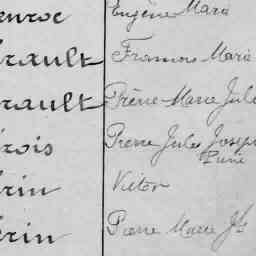 enroc Eugène Marie
rault François Marie
rault Pierre Marie Jul
rois Pierre Jules Joseph
rin Victor
rin Pierre Marie